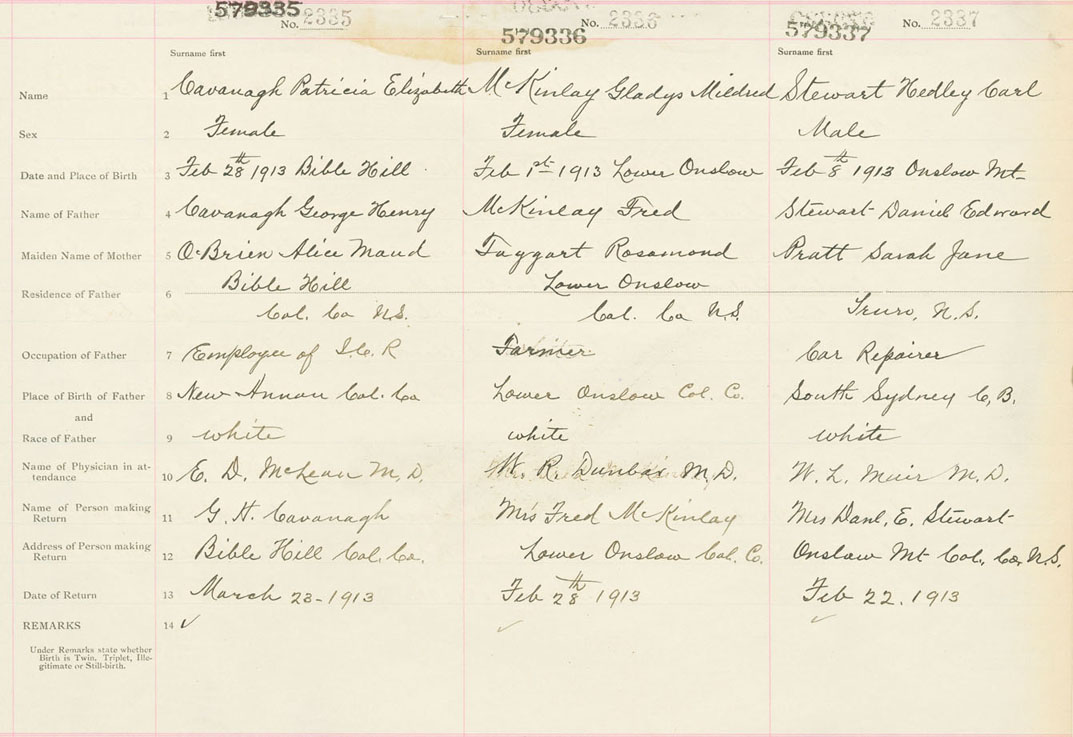 579335 No. 2335 No. 2336 No. 2337
579336 579337
Surname first Surname first Surname first
Name 1 Cavanagh Patricia Elizabeth McKinlay Gladys Mildred Stewart Hedley Carl
Sex 2 Female Female Male
Date and Place of Birth 3 Feb 28th 1913 Bible Hill Feb 1st 1913 Lower Onslow Feb 8th 1913 Onslow Mt
Name of Father 4 Cavanagh George Henry McKinlay Fred Stewart Daniel Edward
Maiden Name of Mother 5 O'Brien Alice Maud Taggart Rosamond Pratt Sarah Jane
Residence of Father 6 Bible Hill Lower Onslow
Col. Co N.S. Col. Co N.S. Truro, N.S.
Occupation of Father 7 Employee of I.C.R Farmer Car Repairer
Place of Birth of Father 8 New Annan Col. Co Lower Onslow Col. Co. South Sydney C.B.
and
Race of Father 9 white white white
Name of Physician in at-
tendance 10 E. D. McLean M.D. W. R. Dunbar M.D. W. L. Muir M.D.
Name of Person making
Return 11 G. H. Cavanagh Mrs Fred McKinlay Mrs Danl. E. Stewart
Address of Person making
Return 12 Bible Hill Col. Co. Lower Onslow Col. Co. Onslow Mt Col. Co. N.S.
Date of Return 13 March 23-1913 Feb 28th 1913 Feb 22. 1913
REMARKS 14 ✓ ✓ ✓
Under Remarks state whether
Birth is Twin. Triplet, Ille-
gitimate or Still-birth.